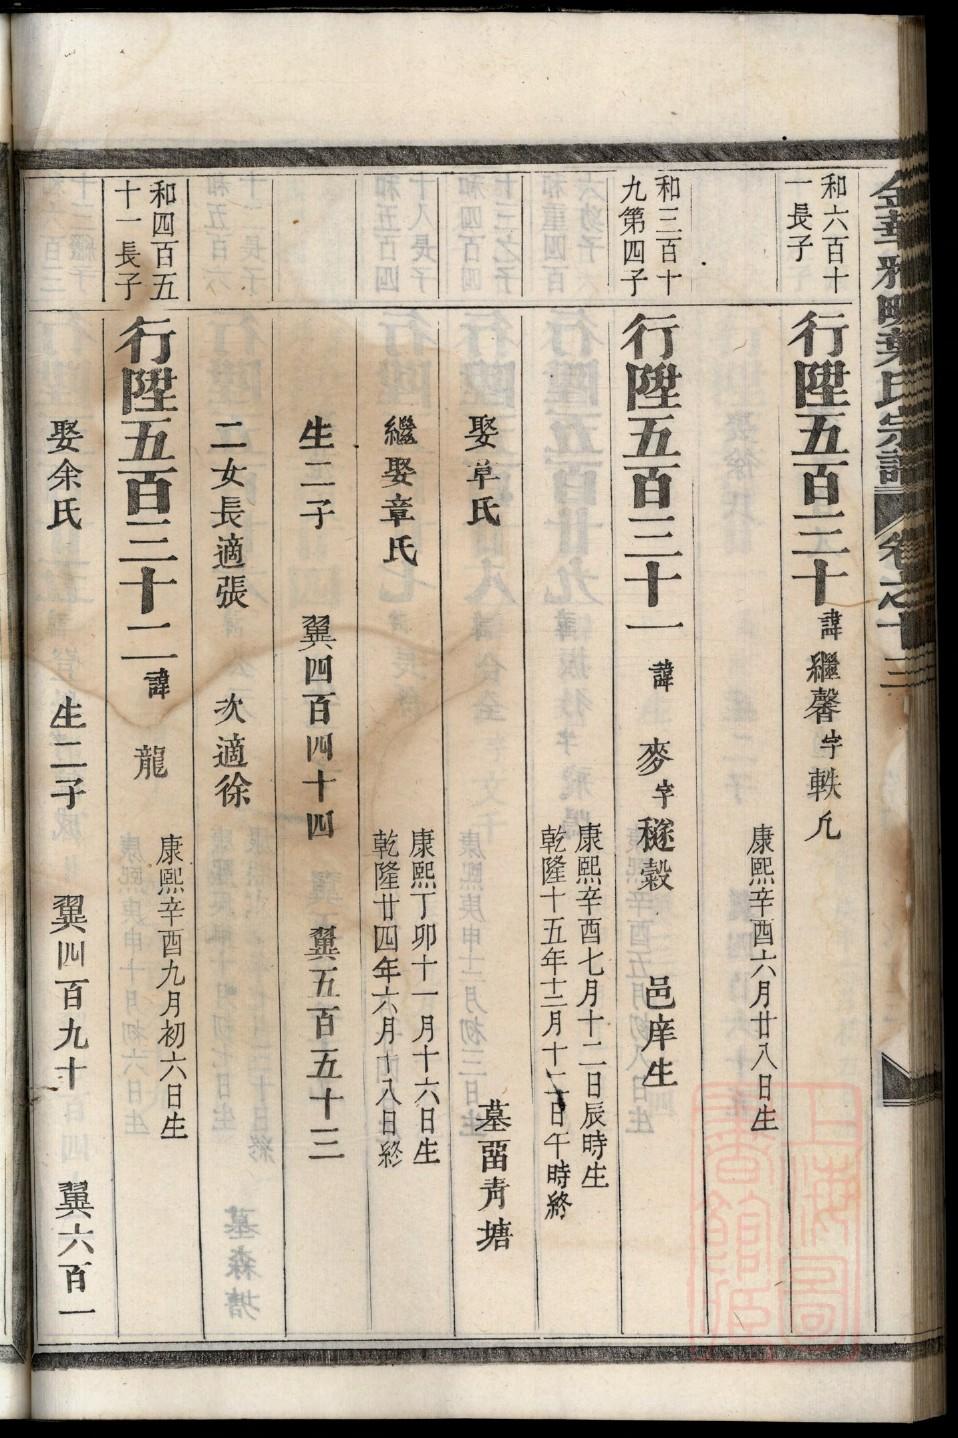 金華雅畈葉氏宗譜 卷之十三
和六百十一長子
行陞五百三十 諱繼馨字軼凡
康熙辛酉六月廿八日生
和三百十九第四子
行陞五百三十一 諱麥字穟穀 邑庠生
康熙辛酉七月十二日辰時生
乾隆十五年十二月十二日午時終
娶章氏 墓畱青塘
繼娶章氏
康熙丁卯十一月十六日生
乾隆廿四年六月十八日終
生二子 翼四百四十四 翼五百五十三
二女長適張 次適徐
和四百五十一長子
行陞五百三十二 諱龍
康熙辛酉九月初六日生
娶余氏 生二子 翼四百九十 翼六百一
上海圖書館藏